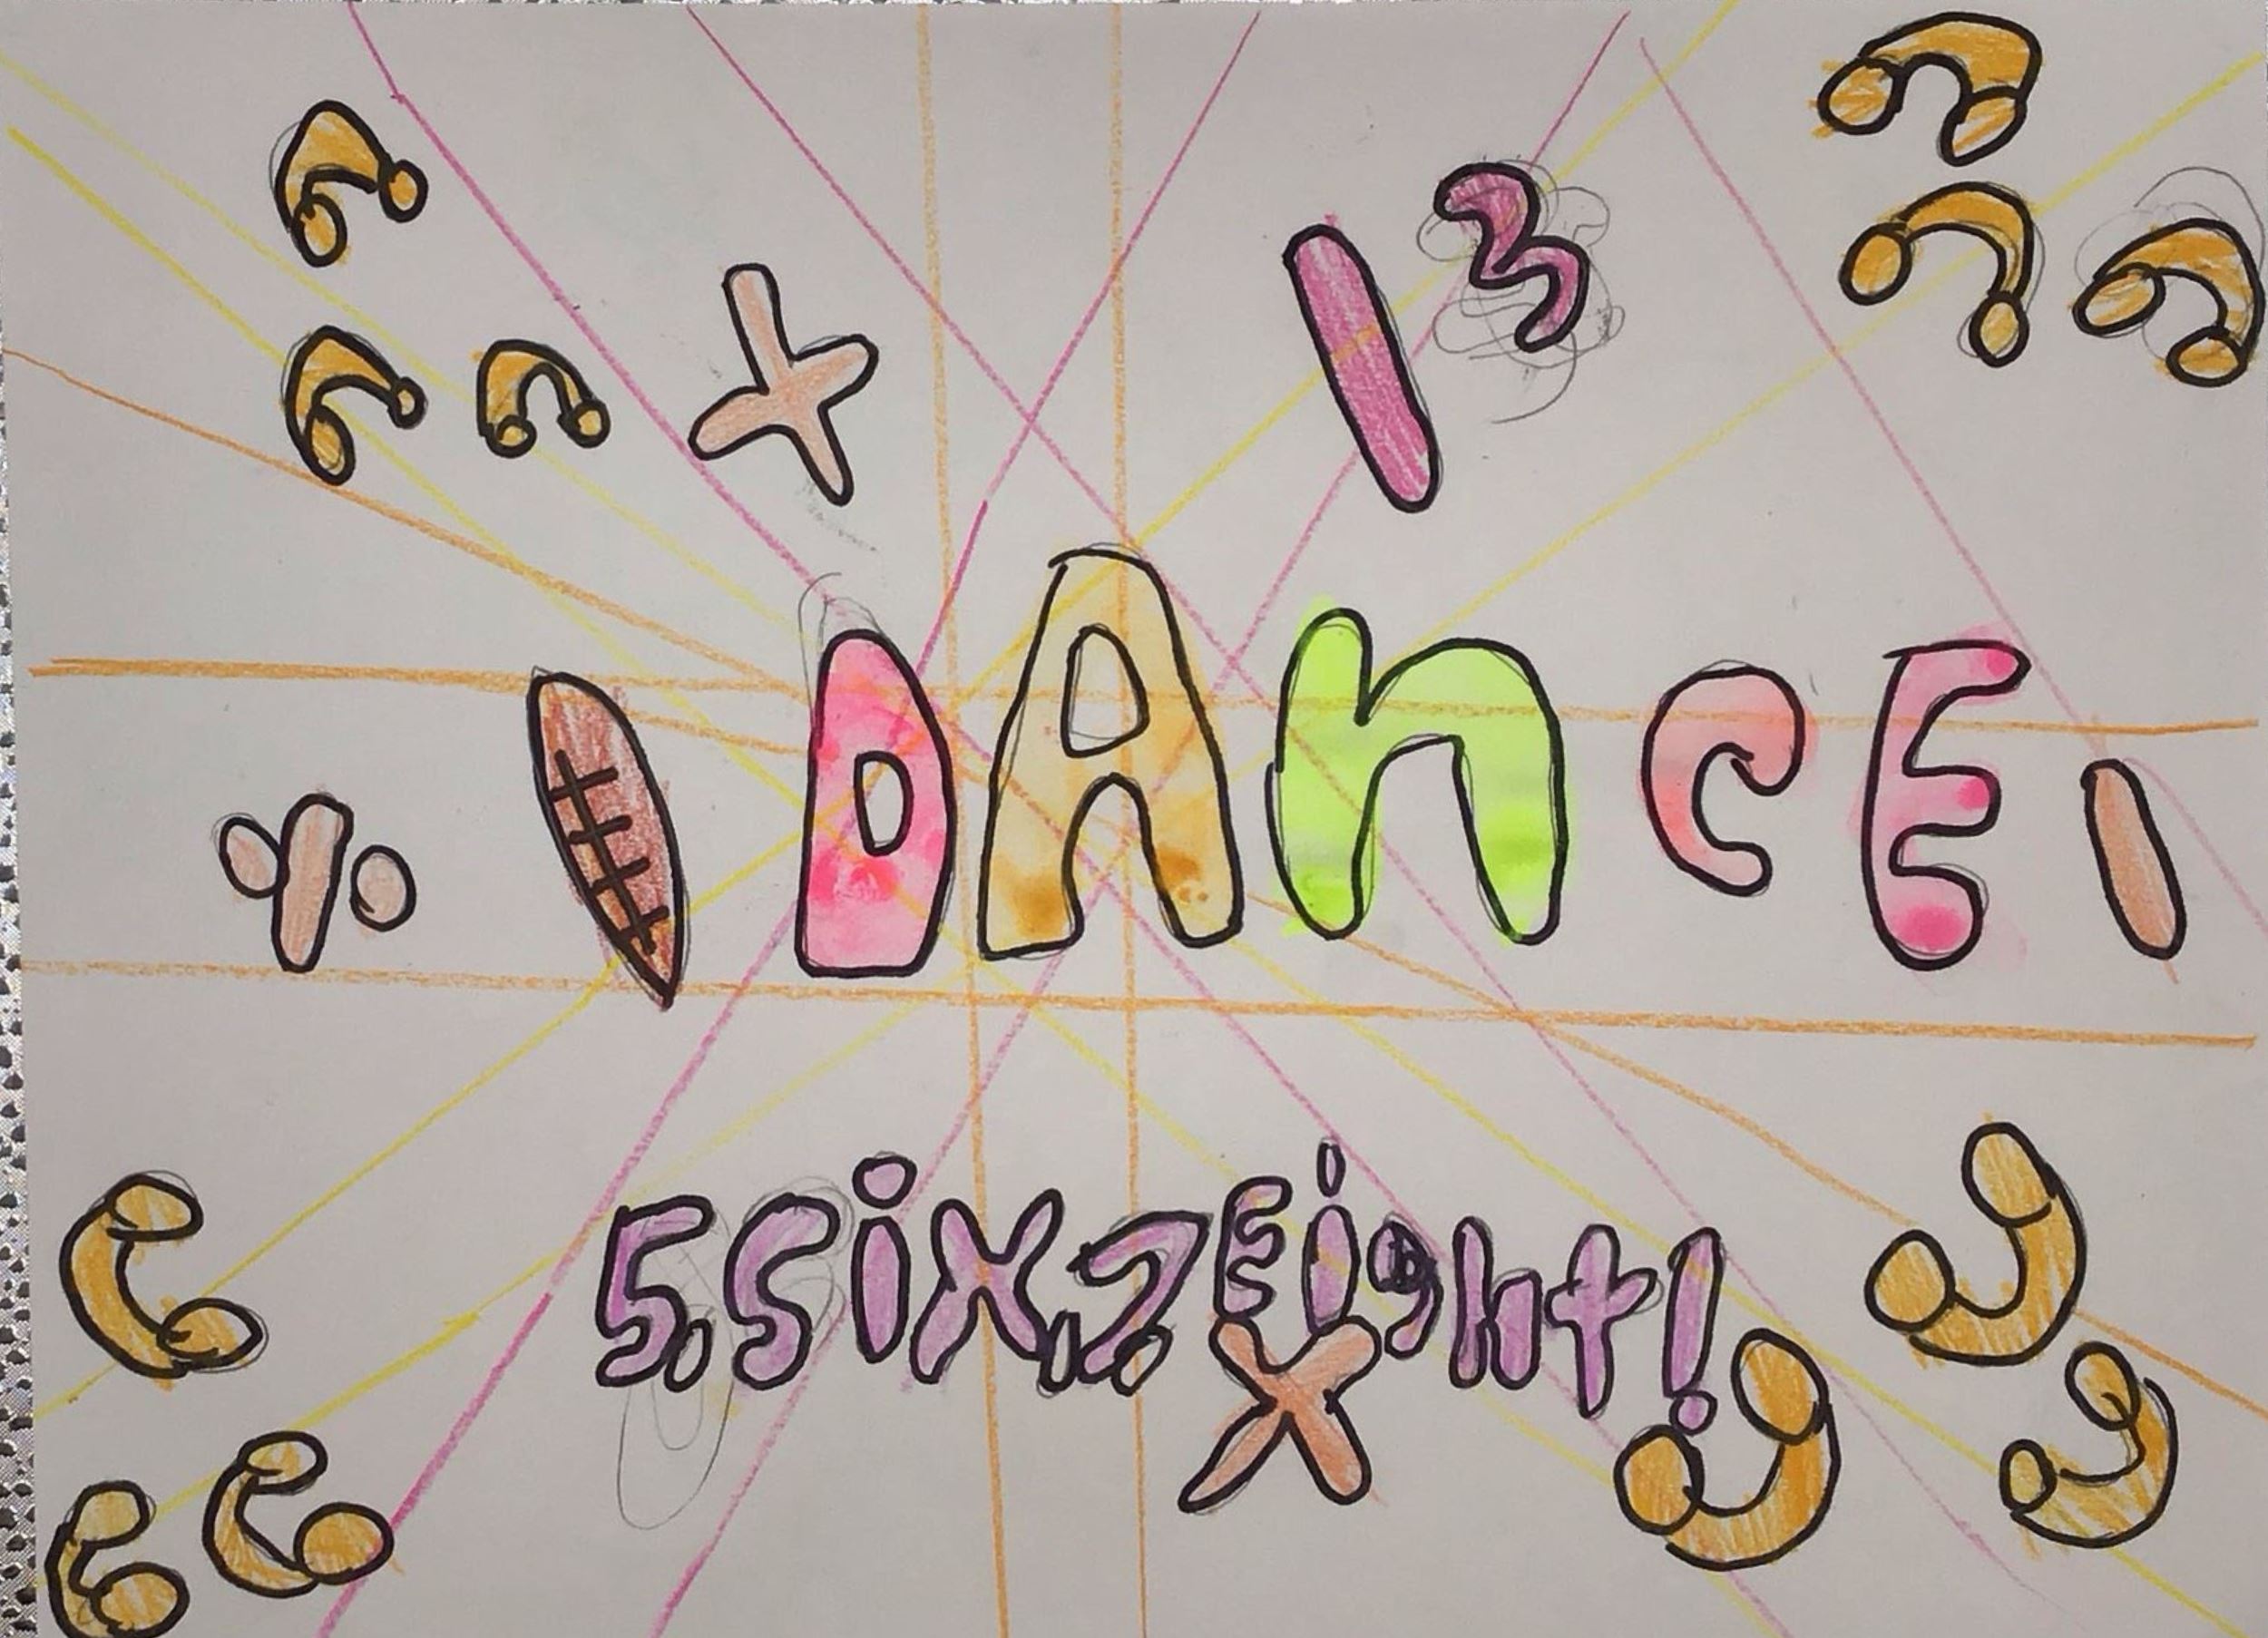 + 1³
÷ DAnCE -
5,Six,7,Eight!
×